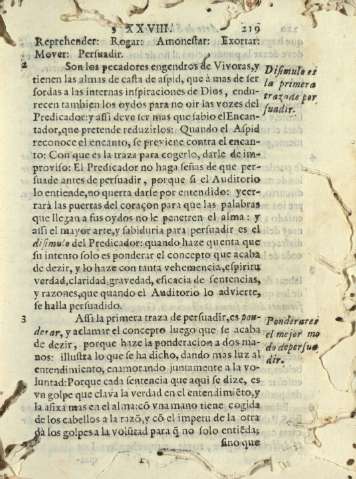 XXVIII. 219
Reprehender: Rogar: Amonestar: Exortar:
Mover: Persuadir.
2 Son los pecadores engendros de Vivoras, y
tienen las almas de casta de aspid, que à mas de ser
sordas a las internas inspiraciones de Dios, endu-
recen tambien los oydos para no oir las vozes del
Predicador: y assi deve ser mas que sabio el Encan-
tador, que pretende reduzirlos: Quando el Aspid
reconoce el encanto, se previene contra el encan-
to: Con que es la traza para cogerlo, darle de im-
proviso: El Predicador no haga señas de que per-
suade antes de persuadir, porque si el Auditorio
lo entiende, no querra darle por entendido: y cer-
rará las puertas del coraçon para que las palabras
que llegan a sus oydos no le penetren el alma: y
aisi el mayor arte, y sabiduria para persuadir es el
disimulo del Predicador: quando haze quenta que
su intento solo es ponderar el concepto que acaba
de dezir, y lo haze con tanta vehemencia, espiritu
verdad, claridad, gravedad, eficacia de sentencias,
y razones, que quando el Auditorio lo advierte,
se halla persuadido.
Disimulo es
la primera
traza de per
suadir.
3 Assi la primera traza de persuadir, es pon-
derar, y aclamar el concepto luego que se acaba
de dezir, porque haze la ponderacion a dos ma-
nos: illustra lo que se ha dicho, dando mas luz al
entendimiento, enamorando juntamente a la vo-
luntad: Porque cada sentencia que aqui se dize, es
vn golpe que clava la verdad en el entendimiẽto, y
la afixa mas en el alma: cõ vna mano tiene cogida
de los cabellos a la razõ, y cõ el impetu de la otra
dà los golpes a la volũtad para q̃ no solo entiẽda;
sino que
Ponderar es
el mejor mo
do de persua
dir.